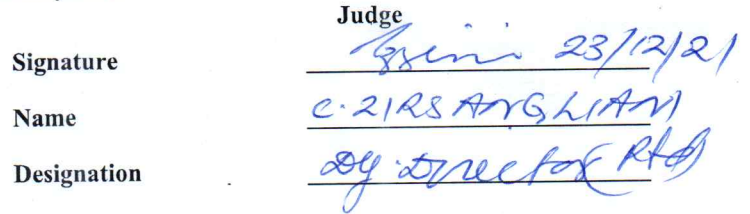 Judge
Signature 23/12/21
Name C. ZIRSANGLIANI
Designation Dy. Director (Rtd)